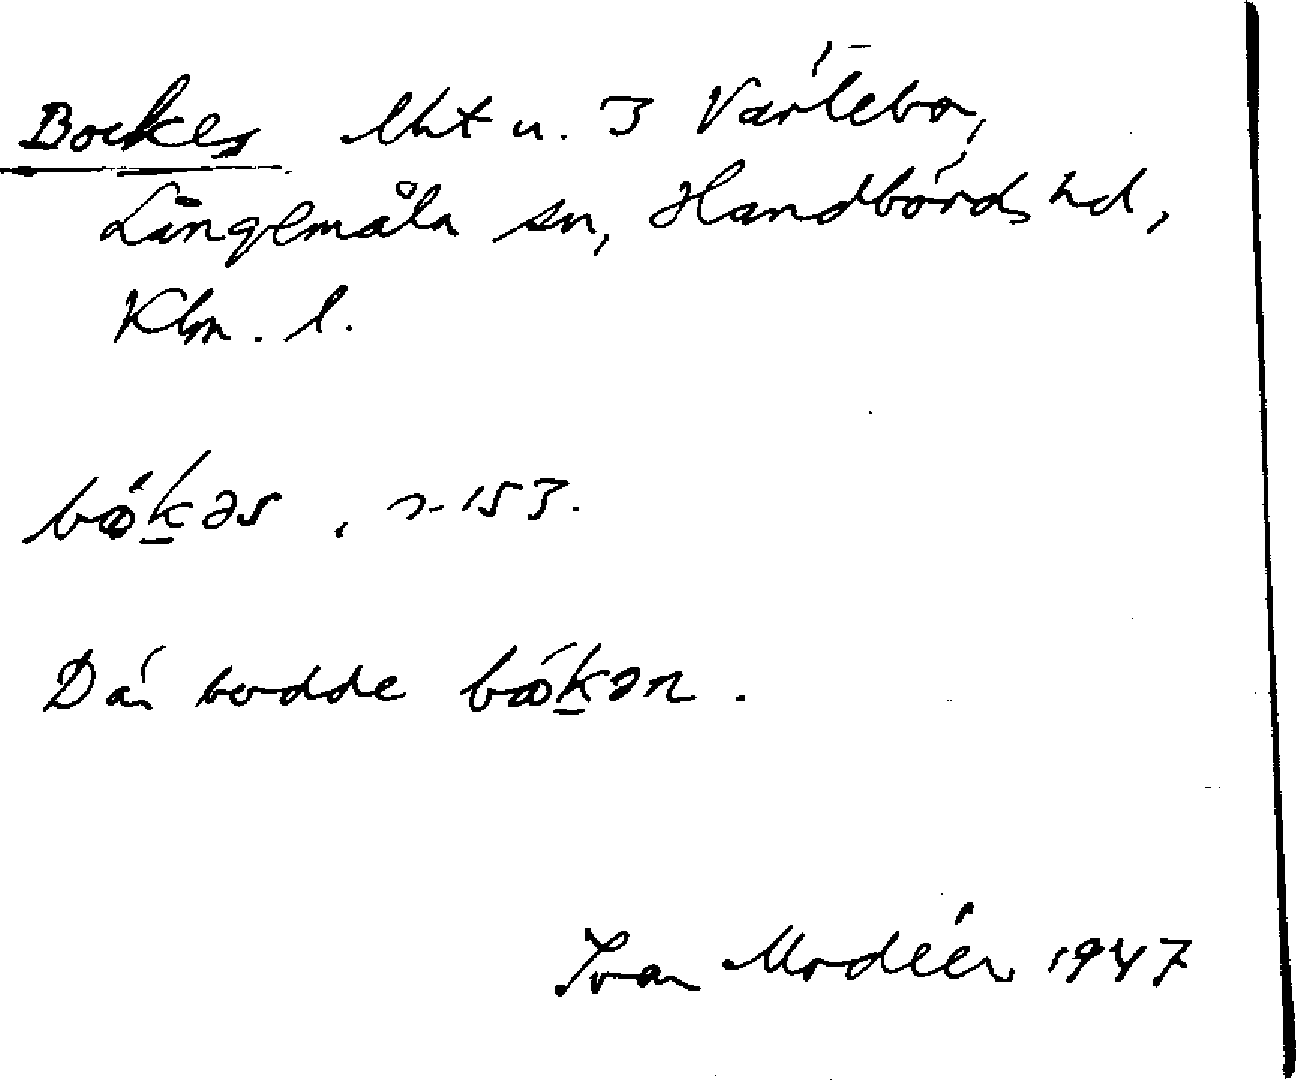 Bockes lht u. 3 Värlebo,
Långemåla sn, Handbörds hd,
Klm. l.
bǿk̠əs, 153.
Där bodde bǿk̠ən.
Ivar Modéer 1947